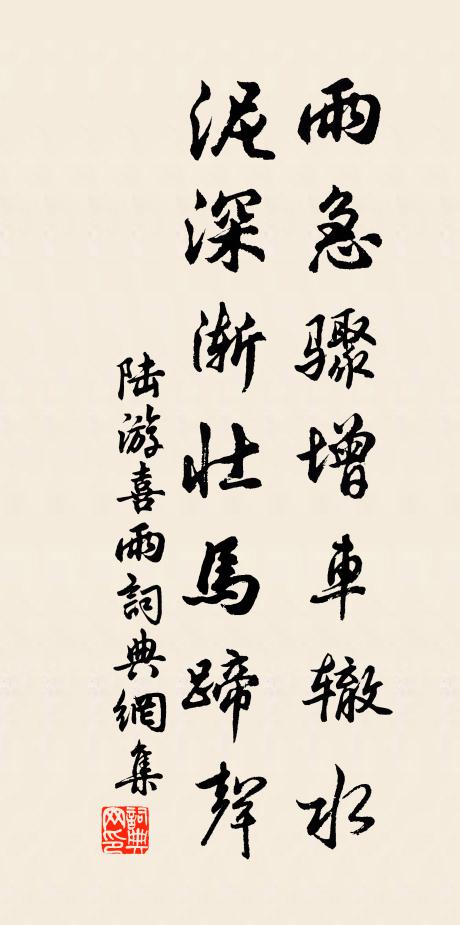 雨急骤增車辙水
泥深渐壮馬蹄聲
陆游喜雨詞典網集
詞典
网印